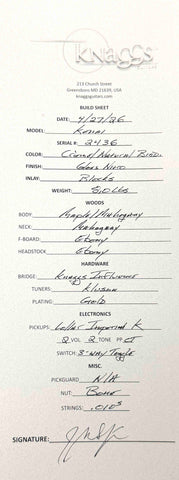 KNAGGS
GUITARS
213 Church Street
Greensboro MD 21639, USA
knaggsguitars.com
BUILD SHEET
DATE: 4/27/26
MODEL: Kenai
SERIAL #: 2436
COLOR: Creme/Natural
FINISH: Gloss Nitro
INLAY: Blocks
WEIGHT: 8.0 Lbs
WOODS
BODY: Maple/Mahogany
NECK: Mahogany
F-BOARD: Ebony
HEADSTOCK: Ebony
HARDWARE
BRIDGE: Knaggs Influence
TUNERS: Kluson
PLATING: Gold
ELECTRONICS
PICKUPS: Lollar Imperial K
2 VOL 2 TONE PP
SWITCH: 3-Way Toggle
MISC.
PICKGUARD: N/A
NUT: Bone
STRINGS: .010s
SIGNATURE: